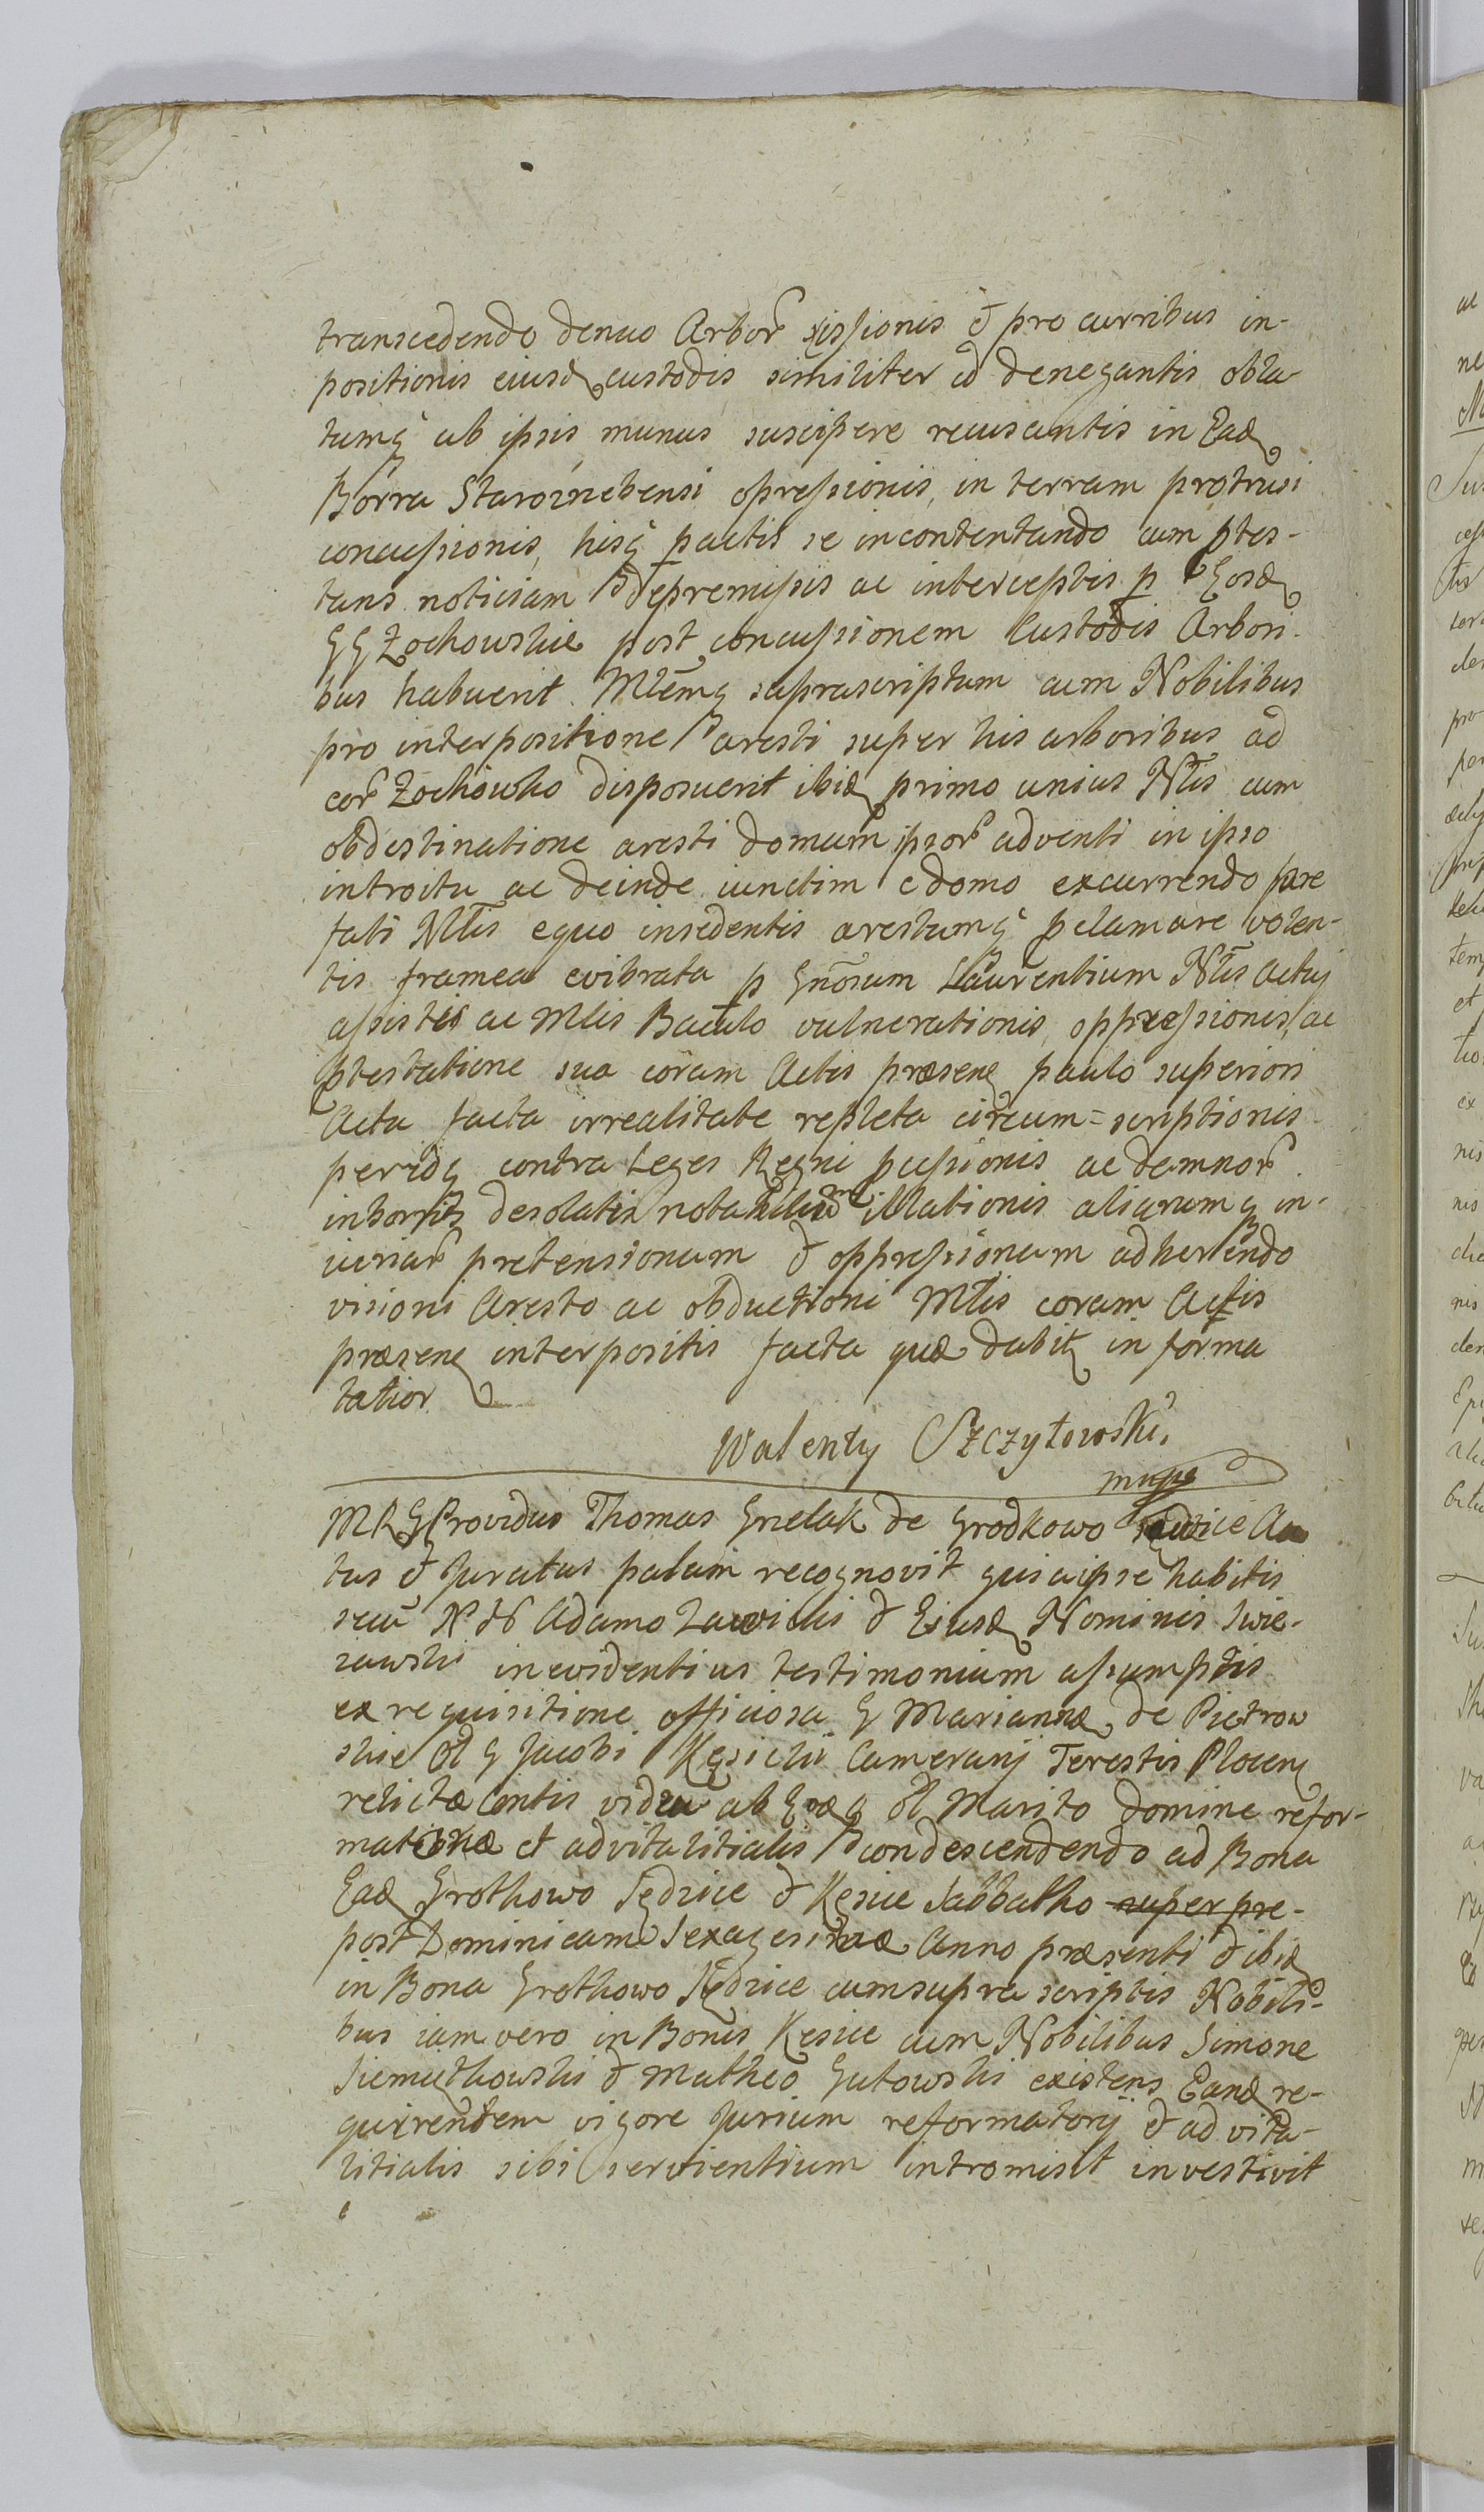 transcedendo denuo Arbor xissionis et pro curribus in-
positionis eiusd custodis similiter id denegantis obla
tumq ab ipsis munus suscipere recusantis in Ead
Borra Starorznebensi opressionis, in terram protrusi
concussionis, hisq pactis se incontentando cum ptes-
tans noticiam de premissis ac interceptis p Eosd
G G Zochowskie post concussionem Custodis Arbori-
bus habuerit Mlemq suprascriptum cum Nobilibus
pro interpositione aresti super his arboribus ad
cor Zochowko disposuerit ibid primo unius Nlis cum
obdestinatione aresti domum ipsor adventi in ipso
introitu ac deinde iunctim e domo excurrendo pre
fati Nlis equo insedentis arestumq pclamare volen-
tis framea evibrata p Gnosum Laurentium Nlis Actuj
assistis ac Mlis Baculo vulnerationis, oppressionis, ac
ptestatione sua coram Actis præsen paulo superiori
Acta facta irrealitate repleta circum=scriptionis
peridq contra Leges Regni pcussionis ac damnor
in borris desolatis notabilium illationis aliarumq in-
iuriar pretensionum et oppressionum adherendo
visioni Aresto ac obductioni Mlis coram Actis
præsen interpositis facta quæ dabit in forma
latior
Walenty Szczytowski,
mnpp
M R G Providus Thomas Gnelak de Grodkowo Sędzice Au
tus et Juratus palam recognovit quia ipse habitis
secu N N Adamo Lawicki et Eiusd Nominis Swie-
rawski in evidentius testimonium assumptis
ex requisitione officiosa G Mariannæ de Pietrow
skie Ol G Jacobi Kęsicki Camerarij Terestis Plocen
relictæ Contis viduæ ab Eodq ol Marito domine refor-
mationæ et advitalitialis condescendendo ad Bona
Ead Grothowo Sędzice et Kęsice Sabbatho super pre-
post Dominicam Sexagesimæ Anno præsenti et ibid
in Bona Grothowo Sędzice cum supra scriptis Nobili-
bus iam vero in Bonis Kęsice cum Nobilibus Simone
Siemięthowski et Matheo Gutowski existens Eand re-
quirentem vigore Jurium reformatorij et ad vita-
litialis sibi servientium intromisit investivit